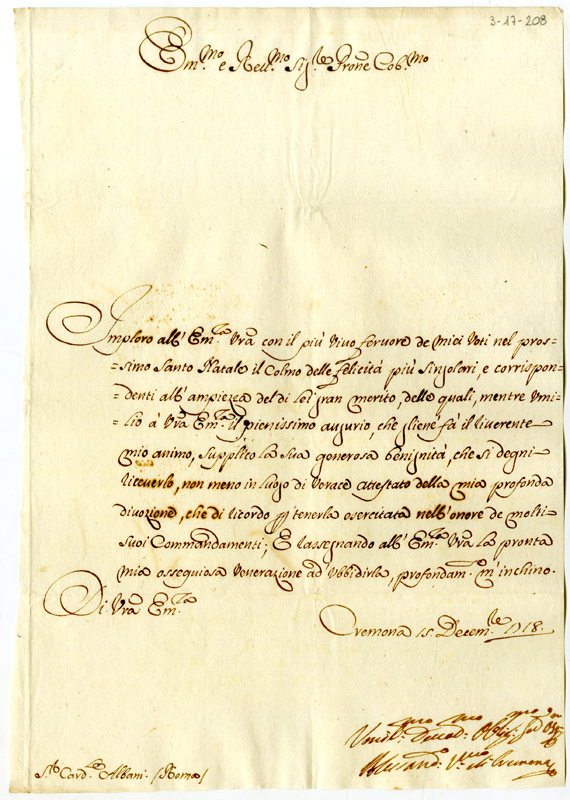 3-17-208
Em.mo e Rev.mo Sig.re Prone Col.mo
Imploro all' Em.za Vrā con il più vivo fervore de miei Voti nel pros=
=simo Santo Natale il Colmo delle felicità più singolari, e corrispon=
=denti all' ampiezza del di lei gran merito, delle quali, mentre Umi=
=lio à Vrā Em.za il pienissimo augurio, che gliene fà il riverente
mio animo, supplico la sua generosa benignità, che si degni
riceverlo, non meno in luogo di verace attestato della mia profonda
divozione, che di ricordo p tenerla esercitata nell' onore de molti
suoi Commandamenti; E rassegnando all' Em.za Vrā la pronta
mia ossequiosa venerazione ad Ubbidirla, profondam.te m' inchino.
Di Vrā Em.za
Cremona 15. Decem.re 1718.
Umil.mo Devot.mo Oblig.mo
Alessand.o V.vo di Cremona
S.r Card.le Albani. (Roma)